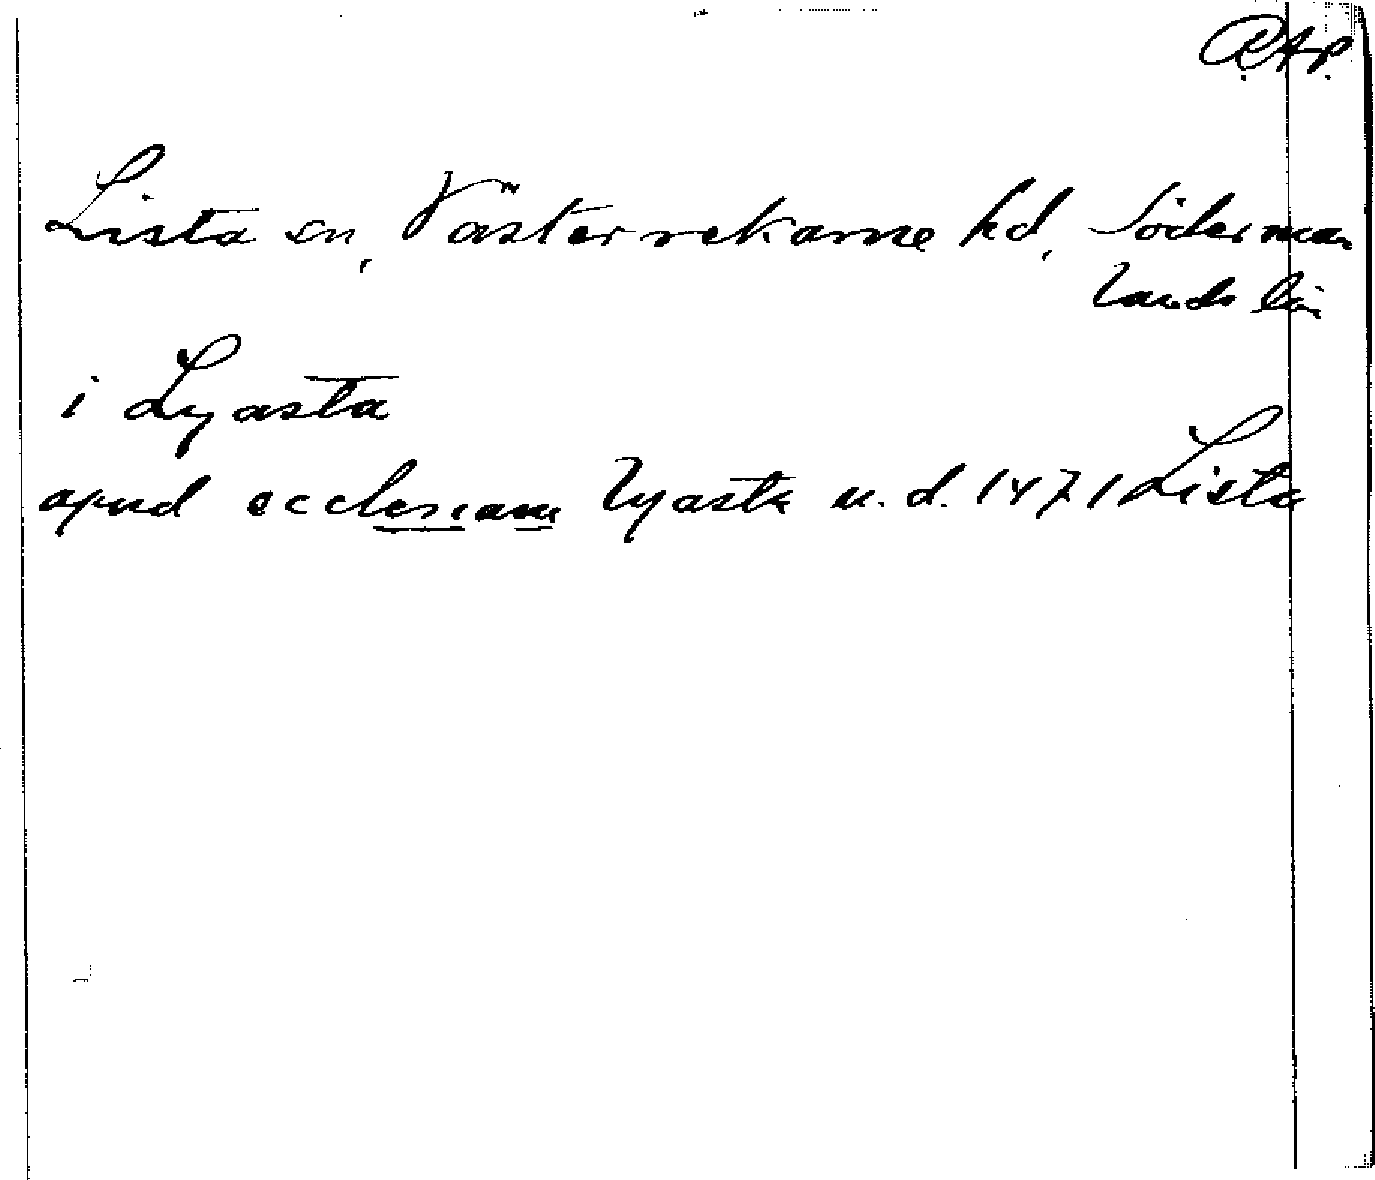 RAP.
Lista sn, Västerrekarne hd, Söderman
lands län
i Lyasta
apud ecclesiam lyasta u.d. 1471 Lista